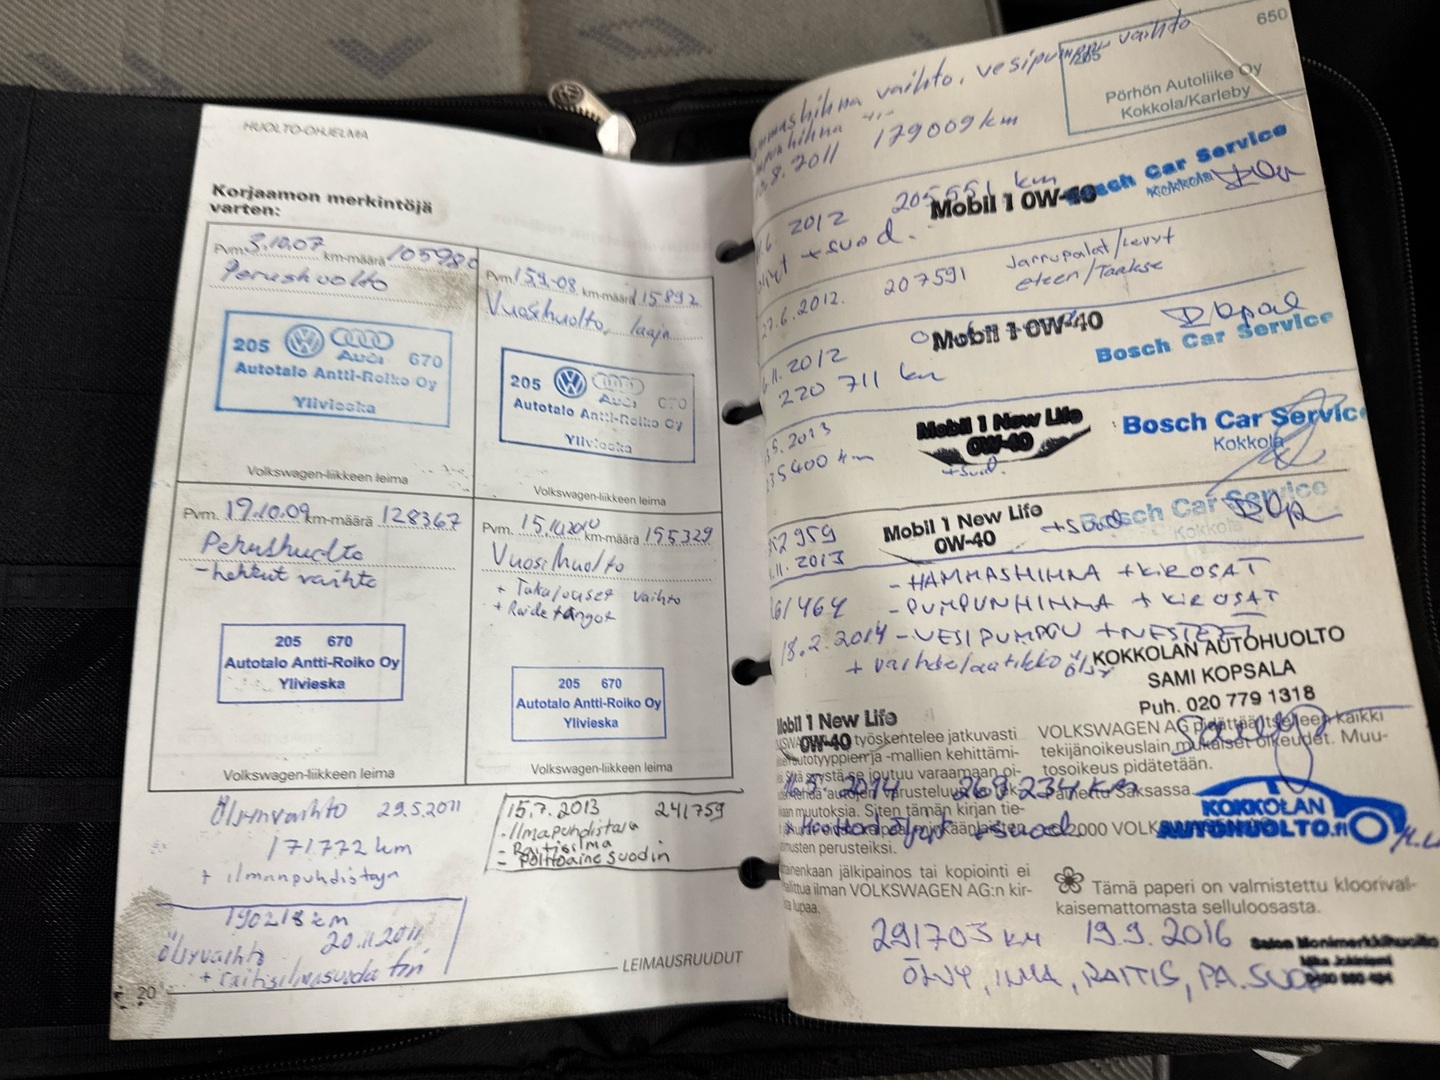 HUOLTO-OHJELMA
Korjaamon merkintöjä
varten:
Pvm. 3.10.07 km-määrä 105980
Perushuolto
205 670
Audi
Autotalo Antti-Roiko Oy
Ylivieska
Volkswagen-liikkeen leima
Pvm. 15.9-08 km-määrä 115892
Vuosihuolto, laaja
205 670
Audi
Autotalo Antti-Roiko Oy
Ylivieska
Volkswagen-liikkeen leima
Pvm. 19.10.09 km-määrä 128367
Perushuolto
- hehkut vaihto
205 670
Autotalo Antti-Roiko Oy
Ylivieska
Volkswagen-liikkeen leima
Pvm. 15.10.2010 km-määrä 155329
Vuosihuolto
+ Takajouset vaihto
+ Raidetangot
205 670
Autotalo Antti-Roiko Oy
Ylivieska
Volkswagen-liikkeen leima
Öljynvaihto 29.5.2011
171772 km
+ ilmanpuhdistaja
190218 km
Öljyvaihto 20.11.2011
+ raitisilmasuodatin
15.7.2013 241759
- Ilmapuhdistaja
- Raitisilma
- Polttoainesuodin
LEIMAUSRUUDUT
20
650
205
Pörhön Autoliike Oy
Kokkola/Karleby
vaihto, vesipumppu vaihto
.8.2011 179009 km
.6. 2012 205551 km
+ suod.
Mobil 1 0W-40
Bosch Car Service
Kokkola
27.6.2012. 207591 Jarrupalat/Levyt
eteen/Taakse
.11.2012
220 711 km
Mobil 1 0W-40
Bosch Car Service
.5.2013
35400 km
Mobil 1 New Life
0W-40
+ suod.
Bosch Car Service
Kokkola
52959
.11.2013
Mobil 1 New Life
0W-40
+ suod
Bosch Car Service
Kokkola
- HAMMASHIHNA + KIROSAT
61464 - PUMPUNHIHNA + KIROSAT
18.2.2014 - VESIPUMPPU + NESTEET
+ vaihdelaatikko öljy
KOKKOLAN AUTOHUOLTO
SAMI KOPSALA
Puh. 020 779 1318
Mobil 1 New Life
0W-40
työskentelee jatkuvasti
autotyyppien ja -mallien kehittämi-
syystä se joutuu varaamaan oi-
muutoksia. Siten tämän kirjan tie-
perusteiksi.
jälkipainos tai kopiointi ei
ilman VOLKSWAGEN AG:n kir-
lupaa.
VOLKSWAGEN AG pidättää itselleen kaikki
tekijänoikeuslain mukaiset oikeudet. Muu-
tosoikeus pidätetään.
Painettu Saksassa
2000 VOLKSWAGEN
.5 2014 269 234 km
+ suod
KOKKOLAN
AUTOHUOLTO.fi
Tämä paperi on valmistettu kloorival-
kaisemattomasta selluloosasta.
291703 km 19.9.2016
ÖLJY, ILMA, RAITIS, PA.SUOD
Salon Monimerkkihuolto
Mika Jokiniemi